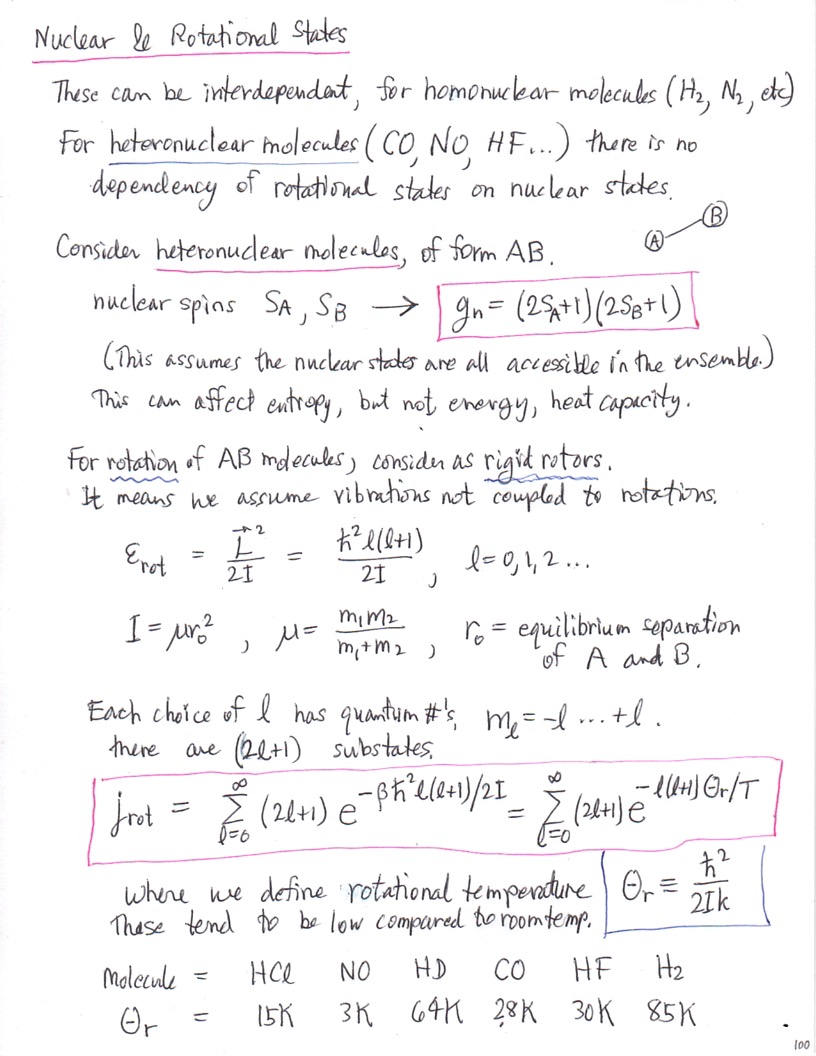 Nuclear & Rotational States
These can be interdependent, for homonuclear molecules (H₂, N₂, etc)
For heteronuclear molecules (CO, NO, HF...) there is no
dependency of rotational states on nuclear states.
A B
Consider heteronuclear molecules, of form AB.
nuclear spins S_A, S_B → g_n = (2S_A+1)(2S_B+1)
(This assumes the nuclear states are all accessible in the ensemble.)
This can affect entropy, but not energy, heat capacity.
For rotation of AB molecules, consider as rigid rotors.
It means we assume vibrations not coupled to rotations.
ε_rot = L⃗²/2I = ħ²l(l+1)/2I, l=0,1,2...
I = μr₀², μ = m₁m₂/(m₁+m₂), r₀ = equilibrium separation
of A and B.
Each choice of l has quantum #'s, m_l = -l ... +l.
there are (2l+1) substates.
j_rot = ∑_{l=0}^{∞} (2l+1) e^{-βħ²l(l+1)/2I} = ∑_{l=0}^{∞} (2l+1) e^{-l(l+1)Θ_r/T}
where we define rotational temperature Θ_r ≡ ħ²/2Ik
These tend to be low compared to room temp.
Molecule = HCl NO HD CO HF H₂
Θ_r = 15K 3K 64K 2.8K 30K 85K
100